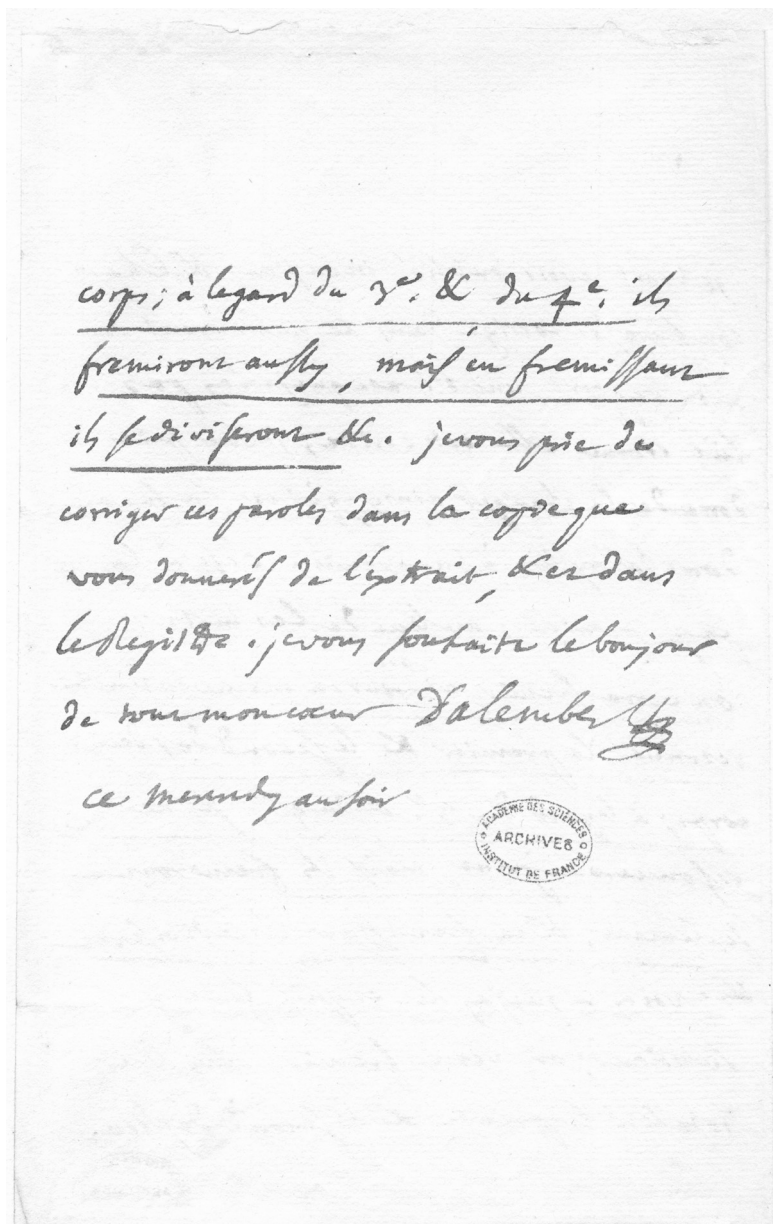 corps; à legard du 3e. & du 4e. ils
fremiront aussy, mais en fremissant
ils se diviseront &c. je vous prie de
corriger ces paroles dans la copie que
vous donnerés de l'extrait, & dans
le Registre. je vous souhaite le bonjour
de tout mon cœur D'alembert
ce mercredy au soir
ACADEMIE DES SCIENCES
ARCHIVES
INSTITUT DE FRANCE